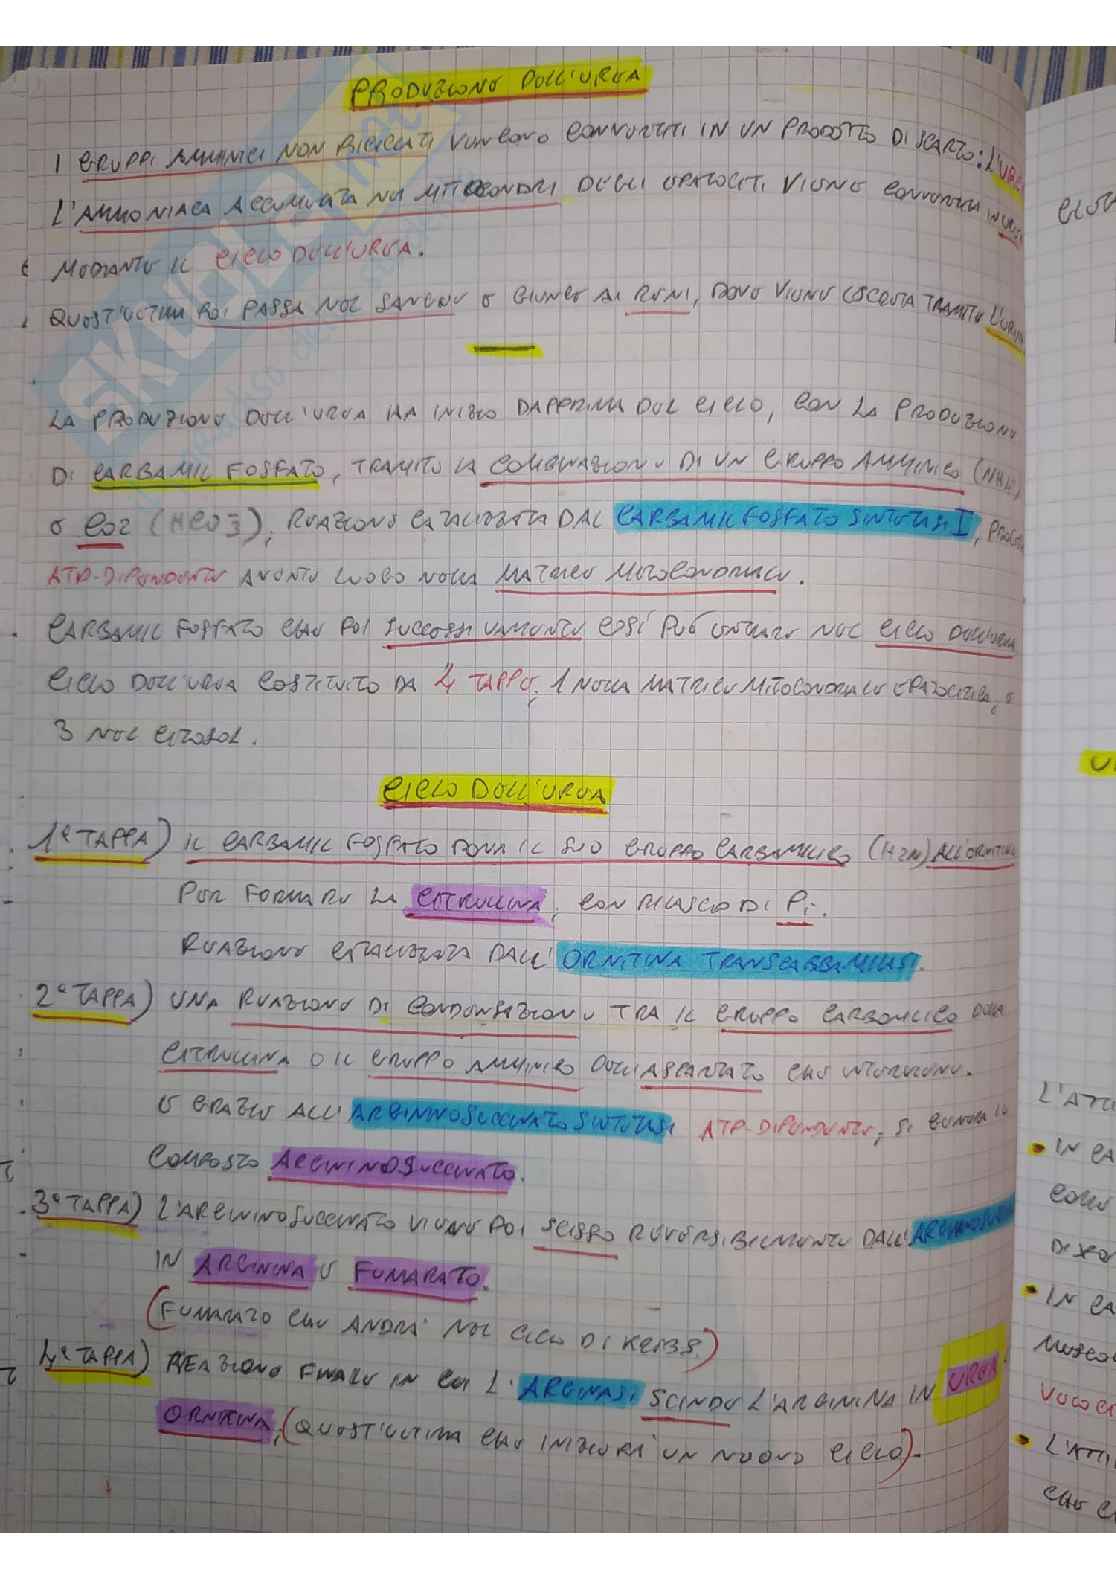 PRODUZIONE DELL'UREA
I GRUPPI AMMINICI NON RICICLATI VENGONO CONVERTITI IN UN PRODOTTO DI SCARTO: L'UREA
L'AMMONIACA ACCUMULATA NEI MITOCONDRI DEGLI EPATOCITI VIENE CONVERTITA IN UREA
MEDIANTE IL CICLO DELL'UREA.
QUEST'ULTIMA POI PASSA NEL SANGUE E GIUNGE AI RENI, DOVE VIENE ESCRETA TRAMITE L'URINA
SKUOLA.net
LA PRODUZIONE DELL'UREA HA INIZIO DAPPRIMA DEL CICLO, CON LA PRODUZIONE
DI CARBAMIL FOSFATO, TRAMITE LA COMBINAZIONE DI UN GRUPPO AMMINICO
E CO2 (HCO3), REAZIONE CATALIZZATA DAL CARBAMIL FOSFATO SINTETASI I,
ATP-DIPENDENTE AVENTE LUOGO NELLA MATRICE MITOCONDRIALE.
CARBAMIL FOSFATO CHE POI SUCCESSIVAMENTE COSÌ PUÒ ENTRARE NEL CICLO DELL'UREA
CICLO DELL'UREA COSTITUITO DA 4 TAPPE, 1 NELLA MATRICE MITOCONDRIALE EPATOCITICA, E
3 NEL CITOSOL.
CICLO DELL'UREA
1ª TAPPA) IL CARBAMIL FOSFATO DONA IL SUO GRUPPO CARBAMILICO (H2N) ALL'ORNITINA
PER FORMARE LA CITRULLINA, CON RILASCIO DI Pi.
REAZIONE CATALIZZATA DALL'ORNITINA TRANSCARBAMILASI.
2ª TAPPA) UNA REAZIONE DI CONDENSAZIONE TRA IL GRUPPO CARBONILICO DELLA
CITRULLINA E IL GRUPPO AMMINICO DELL'ASPARTATO CHE INTERVIENE.
E GRAZIE ALL'ARGININOSUCCINATO SINTETASI ATP-DIPENDENTE, SI GENERA IL
COMPOSTO ARGININOSUCCINATO.
3ª TAPPA) L'ARGININOSUCCINATO VIENE POI SCISSO REVERSIBILMENTE DALL'
IN ARGININA E FUMARATO.
(FUMARATO CHE ANDRÀ NEL CICLO DI KREBS.)
4ª TAPPA) REAZIONE FINALE IN CUI L'ARGINASI SCINDE L'ARGININA IN UREA
ORNITINA, (QUEST'ULTIMA CHE INIZIERÀ UN NUOVO CICLO).
L'ATTI
IN CA
IN CA
L'ATTI